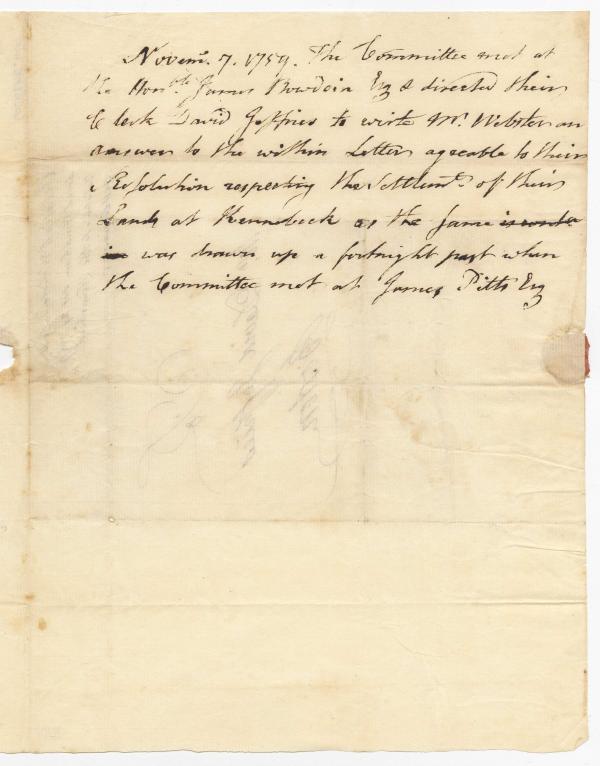 Novemr. 7. 1759. The Committee met at
the Honble James Bowdoin Esq & directed their
Clerk David Jeffries to write Mr. Webster an
answer to the within Letter agreable to their
Resolution respecting the Settlemt. of their
Lands at Kennebeck as the same
was drawn up a fortnight past when
the Committee met at James Pitts Esq